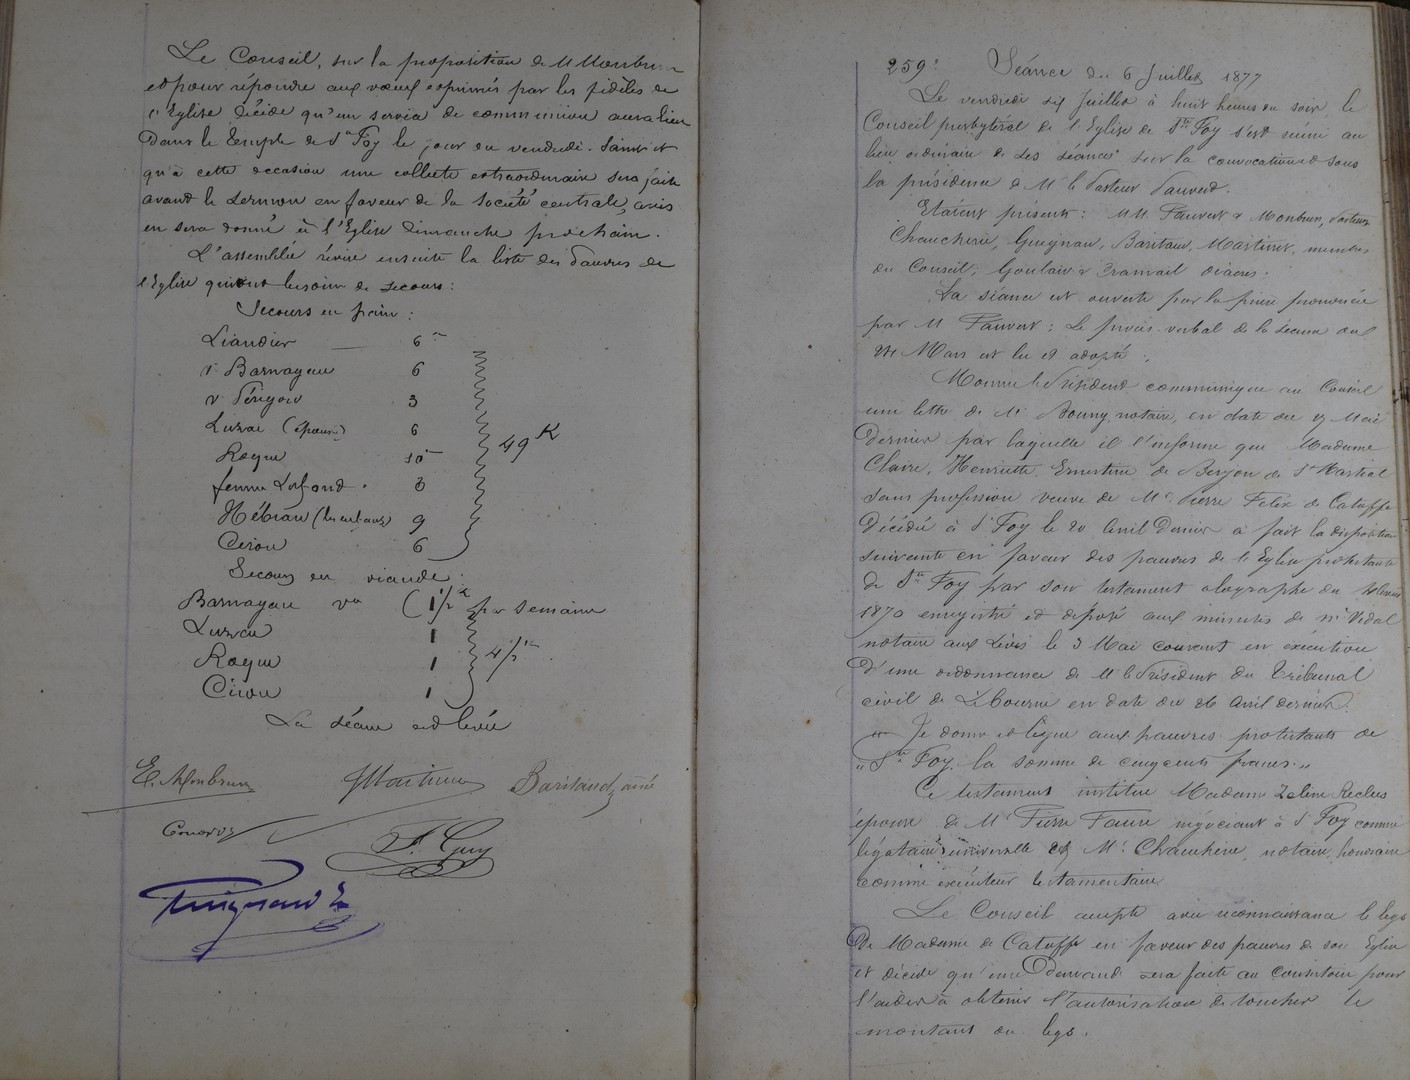 Le Conseil, sur la proposition de M Monbrun
et pour répondre aux vœux exprimés par les fidèles de
l'Eglise décide qu'un service de communion aura lieu
Dans le temple de Ste Foy le jour du vendredi-Saint et
qu'à cette occasion une collecte extraordinaire sera faite
avant le sermon en faveur de la Société centrale, avis
en sera donné à l'Eglise dimanche prochain.
L'assemblée révise ensuite la liste des Pauvres de
l'Eglise qui ont besoin de secours :
Secours en pain :
Liandier — 6
Barnageau 6
v Périgord 3
Luzrai (épouse) 6
Roque 10
femme Lafond. 3
Hébrard (les enfants) 9
Cirou 6
49 K
Secours en viande :
Barnageau ve ( 1 1/2 K par semaine
Luzrai 1
Roque 1
Cirou 1
4 1/2 K
La séance est levée
E. Monbrun JMartinez Baritaud, ainé
F. Guy
Guignard
259e Séance du 6 Juillet 1877
Le vendredi six Juillet à huit heures du soir, le
Conseil presbytéral de l'Eglise de Ste Foy s'est réuni au
lieu ordinaire de ses séances sur la convocation et sous
la présidence de Mr le Pasteur Pauvert.
Etaient présents : MM Pauvert & Monbrun, Pasteurs
Chaucherie, Guignard, Baritaud, Martinez, membres
du Conseil, Goulard & Tramail diacres.
La séance est ouverte par la prière prononcée
par M Pauvert ; Le procès-verbal de la séance du
24 Mars est lu et adopté.
Monsieur le Président communique au Conseil
une lettre de Mr Bouny, notaire, en date du 17 Mai
dernier par laquelle il l'informe que Madame
Claire, Henriette, Ernestine de Berjon de St Martial
sans profession veuve de Mr Pierre Felix de Catuffe
Décédée à Ste Foy le 20 Avril Dernier a fait la disposition
suivante en faveur des pauvres de l'Eglise protestante
de Ste Foy par son testament olographe du
1870 enregistré et déposé aux minutes de Mr Vidal
notaire aux Lèves le 3 Mai courant en exécution
D'une ordonnance de M le Président du Tribunal
civil de Libourne en date du 26 Avril dernier.
" Je donne et lègue aux pauvres protestants de
" Ste Foy la somme de cinq cents francs. "
Ce testament institue Madame Zeline Reclus
épouse de Mr Pierre Faure négociant à Ste Foy comme
légataire universelle et Mr Chaucherie, notaire, honoraire
comme exécuteur testamentaire
Le Conseil accepte avec reconnaissance le legs
De Madame de Catuffe en faveur des pauvres de son Eglise
et décide qu'une Demande sera faite au Consistoire pour
l'aider à obtenir l'autorisation de toucher le
montant du legs.